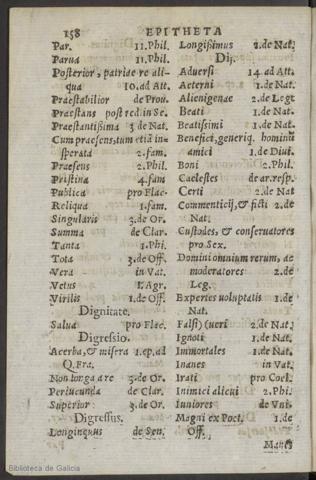 158 EPITHETA
Par. 11. Phil.
Parua 11. Phil.
Posterior, patriae re ali-
qua 10. ad Att.
Praestabilior de Prou.
Praestans post red. in Se.
Praestantissima 3. de Nat.
Cum praesens, tum etiã in-
sperata 2. fam.
Praesens 2. Phil.
Pristina 4. fam
Publica pro Flac.
Reliqua 1. fam.
Singularis 3. de Or.
Summa de Clar.
Tanta 1. Phi.
Tota 3. de Off.
Vera in Vat.
Vetus 1. Agr.
Virilis 1. de Off.
Dignitate.
Salua pro Flac.
Digressio.
Acerba, & misera 1. ep. ad
Q. Fra.
Non longa are 3. de Or.
Periucunda de Clar.
Superior 3. de Or.
Digressus.
Longinquus de Sen.
Longissimus 2. de Nat.
Dij.
Aduersi 14. ad Att.
Aeterni 1. de Nat.
Alienigenae 2. de Legi
Beati 1. de Nat.
Beatissimi 1. de Nat.
Benefici, generiq. hominũ
amici 1. de Diui.
Boni 2. Phil.
Caelestes de ar. resp.
Certi 2. de Nat
Commenticij, & ficti 2. de
Nat.
Custodes, & conseruatores
pro Sex.
Domini omnium rerum, ac
moderatores 2. de
Leg.
Expertes uoluptatis 1. de
Nat.
Falsi) (ueri 2. de Nat.
Ignoti 1. de Nat.
Immortales 1. de Nat.
Inanes in Vat.
Irati pro Coel.
Inimici alicui 2. Phi.
Iuniores de Vni.
Magni ex Poet. 1. de
Off.
Manes
Biblioteca de Galicia